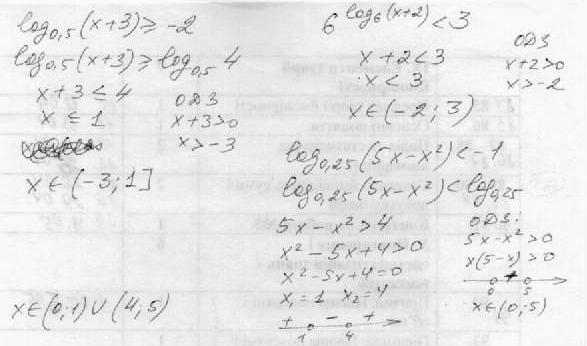 log₀,₅(x+3) ≥ -2
log₀,₅(x+3) ≥ log₀,₅ 4
x+3 ≤ 4
x ≤ 1
ОДЗ
x+3>0
x>-3
x∈(-3;1]
6^log₆(x+2) < 3
x+2<3
x<3
ОДЗ
x+2>0
x>-2
x∈(-2;3)
log₀,₂₅(5x-x²)<-1
log₀,₂₅(5x-x²)<log₀,₂₅
5x-x²>4
x²-5x+4>0
x²-5x+4=0
x₁=1 x₂=4
+ - +
1 4
ОДЗ:
5x-x²>0
x(5-x)>0
+
0 5
x∈(0;5)
x∈(0;1)∪(4;5)